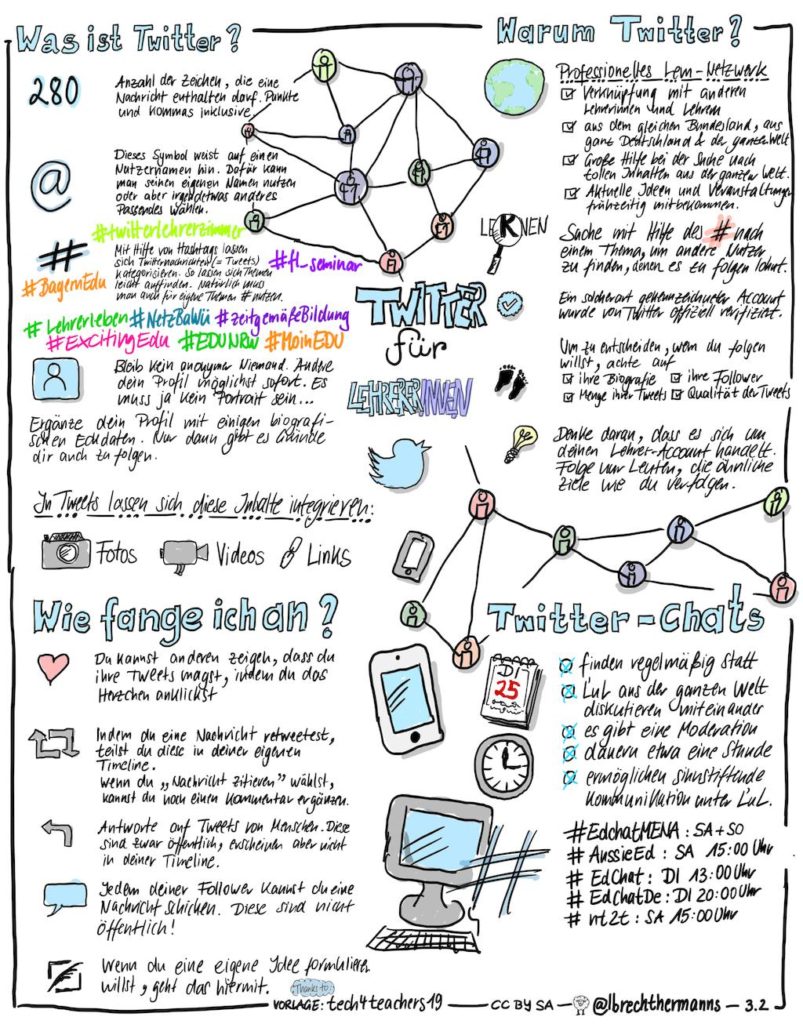 Was ist Twitter?
280
Anzahl der Zeichen, die eine
Nachricht enthalten darf. Punkte
und Kommas inklusive.
@
Dieses Symbol weist auf einen
Nutzernamen hin. Dafür kann
man seinen eigenen Namen nutzen
oder aber irgendetwas anderes
Passendes wählen.
#twitterlehrerzimmer
#
Mit Hilfe von Hashtags lassen
sich Twitternachrichten (= Tweets)
kategorisieren. So lassen sich Themen
leicht auffinden. Natürlich muss
man auch für eigene Themen # nutzen.
#fl_seminar
#BayernEdu
#Lehrerleben #NetzBaWü #zeitgemäßeBildung
#ExcitingEdu #EDUNRW #MoinEDU
Bleib kein anonymer Niemand. Ändere
dein Profil möglichst sofort. Es
muss ja kein Portrait sein...
Ergänze dein Profil mit einigen biografi-
schen Eckdaten. Nur dann gibt es Gründe
dir auch zu folgen.
In Tweets lassen sich diese Inhalte integrieren:
Fotos Videos Links
TWITTER
für
LEHRERERINNEN
Warum Twitter?
Professionelles Lern-Netzwerk
Verknüpfung mit anderen
Lehrerinnen und Lehrern
aus dem gleichen Bundesland, aus
ganz Deutschland & der ganzen Welt
Große Hilfe bei der Suche nach
tollen Inhalten aus der ganzen Welt.
Aktuelle Ideen und Veranstaltungen
frühzeitig mitbekommen.
LERNEN
Suche mit Hilfe des # nach
einem Thema, um andere Nutzer
zu finden, denen es zu folgen lohnt.
Ein solcherart gekennzeichneter Account
wurde von Twitter offiziell verifiziert.
Um zu entscheiden, wem du folgen
willst, achte auf
ihre Biografie ihre Follower
Menge ihrer Tweets Qualität der Tweets
Denke daran, dass es sich um
deinen Lehrer-Account handelt.
Folge nur Leuten, die ähnliche
Ziele wie du verfolgen.
Wie fange ich an?
Du kannst anderen zeigen, dass du
ihre Tweets magst, indem du das
Herzchen anklickst
Indem du eine Nachricht retweetest,
teilst du diese in deiner eigenen
Timeline.
Wenn du „Nachricht zitieren" wählst,
kannst du noch einen Kommentar ergänzen.
Antworte auf Tweets von Menschen. Diese
sind zwar öffentlich, erscheinen aber nicht
in deiner Timeline.
Jedem deiner Follower kannst du eine
Nachricht schicken. Diese sind nicht
öffentlich!
Wenn du eine eigene Idee formulieren
willst, geht das hiermit.
Twitter-Chats
DI
25
finden regelmäßig statt
LuL aus der ganzen Welt
diskutieren miteinander
es gibt eine Moderation
dauern etwa eine Stunde
ermöglichen sinnstiftende
Kommunikation unter LuL.
#EdchatMENA: SA+SO
# AussieEd: SA 15:00 Uhr
# EdChat: DI 13:00 Uhr
# EdChatDe: DI 20:00 Uhr
# nt2t: SA 15:00 Uhr
#
Thanks to
VORLAGE: tech4teachers19 CC BY SA @lbrechthermanns 3.2